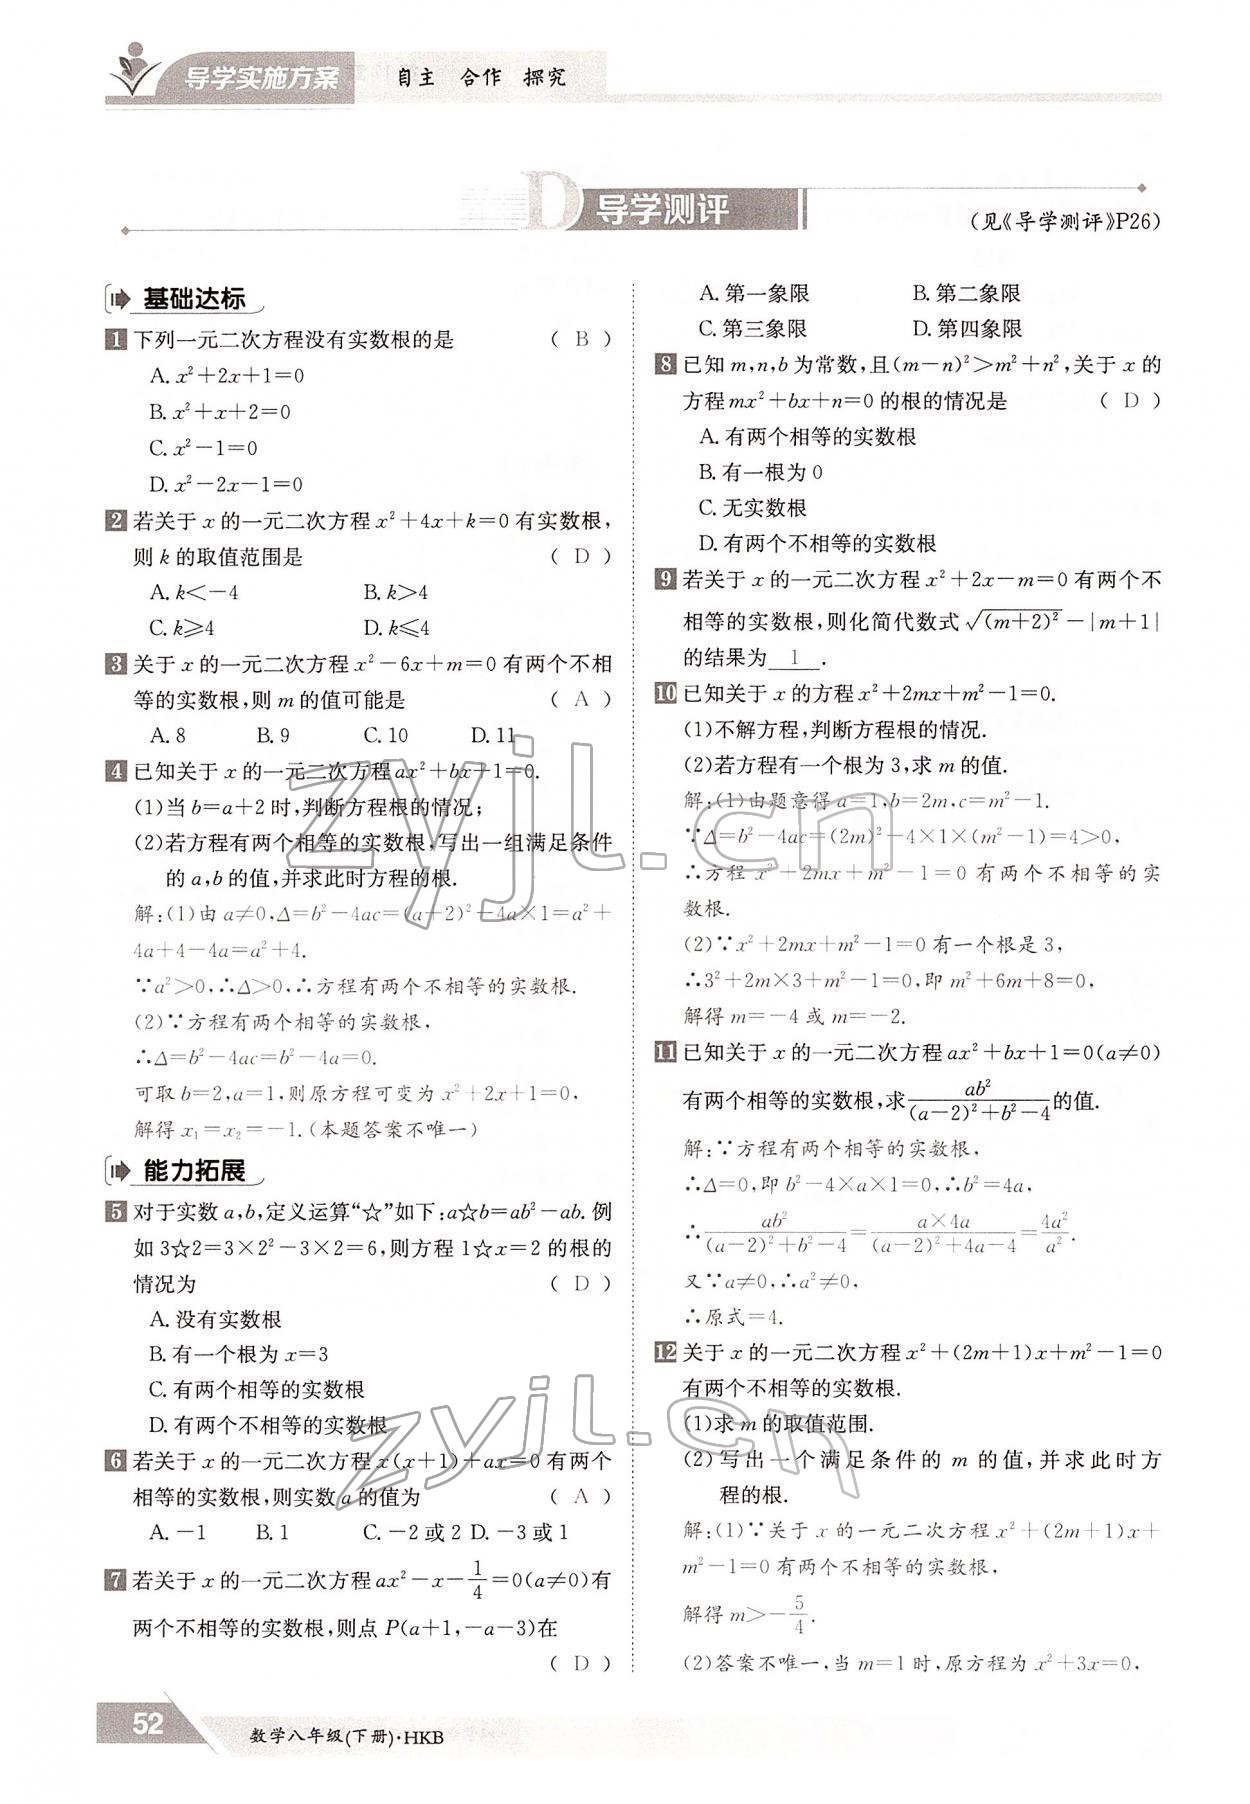 导学实施方案 自主 合作 探究
D 导学测评
(见《导学测评》P26)
基础达标
1 下列一元二次方程没有实数根的是 ( B )
A. x²+2x+1=0
B. x²+x+2=0
C. x²-1=0
D. x²-2x-1=0
2 若关于 x 的一元二次方程 x²+4x+k=0 有实数根,
则 k 的取值范围是 ( D )
A. k<-4 B. k>4
C. k≥4 D. k≤4
3 关于 x 的一元二次方程 x²-6x+m=0 有两个不相
等的实数根,则 m 的值可能是 ( A )
A. 8 B. 9 C. 10 D. 11
4 已知关于 x 的一元二次方程 ax²+bx+1=0.
(1)当 b=a+2 时,判断方程根的情况;
(2)若方程有两个相等的实数根,写出一组满足条件
的 a,b 的值,并求此时方程的根.
解:(1)由 a≠0,Δ=b²-4ac=(a+2)²-4a×1=a²+
4a+4-4a=a²+4.
∵a²>0,∴Δ>0,∴方程有两个不相等的实数根.
(2)∵方程有两个相等的实数根,
∴Δ=b²-4ac=b²-4a=0.
可取 b=2,a=1,则原方程可变为 x²+2x+1=0,
解得 x₁=x₂=-1.(本题答案不唯一)
能力拓展
5 对于实数 a,b,定义运算“☆”如下:a☆b=ab²-ab. 例
如 3☆2=3×2²-3×2=6,则方程 1☆x=2 的根的
情况为 ( D )
A. 没有实数根
B. 有一个根为 x=3
C. 有两个相等的实数根
D. 有两个不相等的实数根
6 若关于 x 的一元二次方程 x(x+1)+ax=0 有两个
相等的实数根,则实数 a 的值为 ( A )
A. -1 B. 1 C. -2 或 2 D. -3 或 1
7 若关于 x 的一元二次方程 ax²-x-1/4=0(a≠0)有
两个不相等的实数根,则点 P(a+1,-a-3)在
( D )
A. 第一象限 B. 第二象限
C. 第三象限 D. 第四象限
8 已知 m,n,b 为常数,且(m-n)²>m²+n²,关于 x 的
方程 mx²+bx+n=0 的根的情况是 ( D )
A. 有两个相等的实数根
B. 有一根为 0
C. 无实数根
D. 有两个不相等的实数根
9 若关于 x 的一元二次方程 x²+2x-m=0 有两个不
相等的实数根,则化简代数式 √(m+2)²-|m+1|
的结果为 1 .
10 已知关于 x 的方程 x²+2mx+m²-1=0.
(1)不解方程,判断方程根的情况.
(2)若方程有一个根为 3,求 m 的值.
解:(1)由题意得 a=1,b=2m,c=m²-1.
∵Δ=b²-4ac=(2m)²-4×1×(m²-1)=4>0,
∴方程 x²+2mx+m²-1=0 有两个不相等的实
数根.
(2)∵x²+2mx+m²-1=0 有一个根是 3,
∴3²+2m×3+m²-1=0,即 m²+6m+8=0,
解得 m=-4 或 m=-2.
11 已知关于 x 的一元二次方程 ax²+bx+1=0(a≠0)
有两个相等的实数根,求 ab²/((a-2)²+b²-4) 的值.
解:∵方程有两个相等的实数根,
∴Δ=0,即 b²-4×a×1=0,∴b²=4a,
∴ab²/((a-2)²+b²-4)=a×4a/((a-2)²+4a-4)=4a²/a².
又∵a≠0,∴a²≠0,
∴原式=4.
12 关于 x 的一元二次方程 x²+(2m+1)x+m²-1=0
有两个不相等的实数根.
(1)求 m 的取值范围.
(2)写出一个满足条件的 m 的值,并求此时方
程的根.
解:(1)∵关于 x 的一元二次方程 x²+(2m+1)x+
m²-1=0 有两个不相等的实数根,
解得 m>-5/4.
(2)答案不唯一,当 m=1 时,原方程为 x²+3x=0,
52 数学八年级(下册)·HKB
zyjl.cn
zyjl.cn